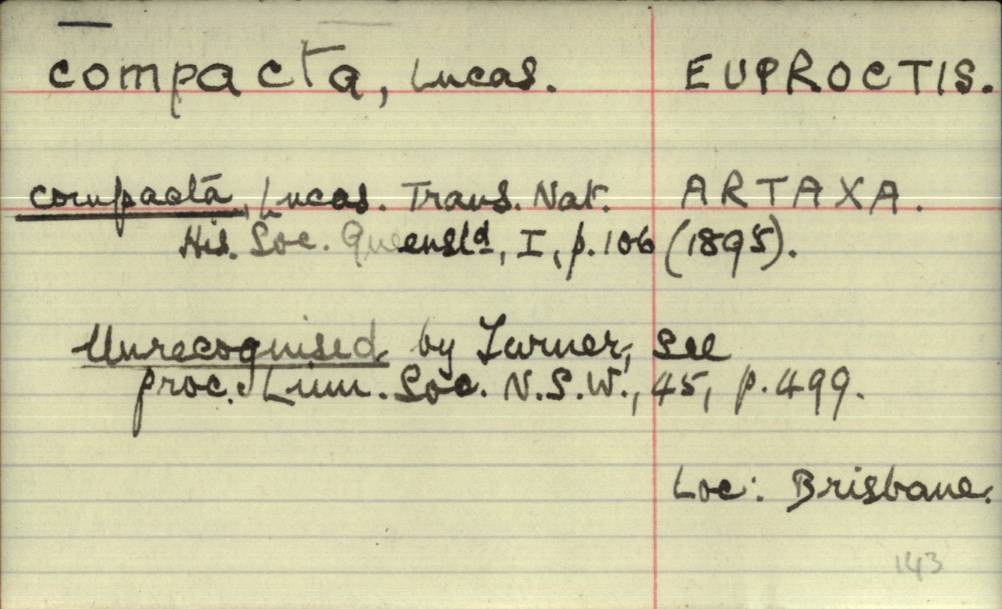 compacta, Lucas. EUPROCTIS.
compacta, Lucas. Trans. Nat. ARTAXA.
His. Soc. Queensld, I, p.106 (1895).
Unrecognised by Turner, see
proc. Linn. Soc. N.S.W., 45, p.499.
Loc: Brisbane.
143